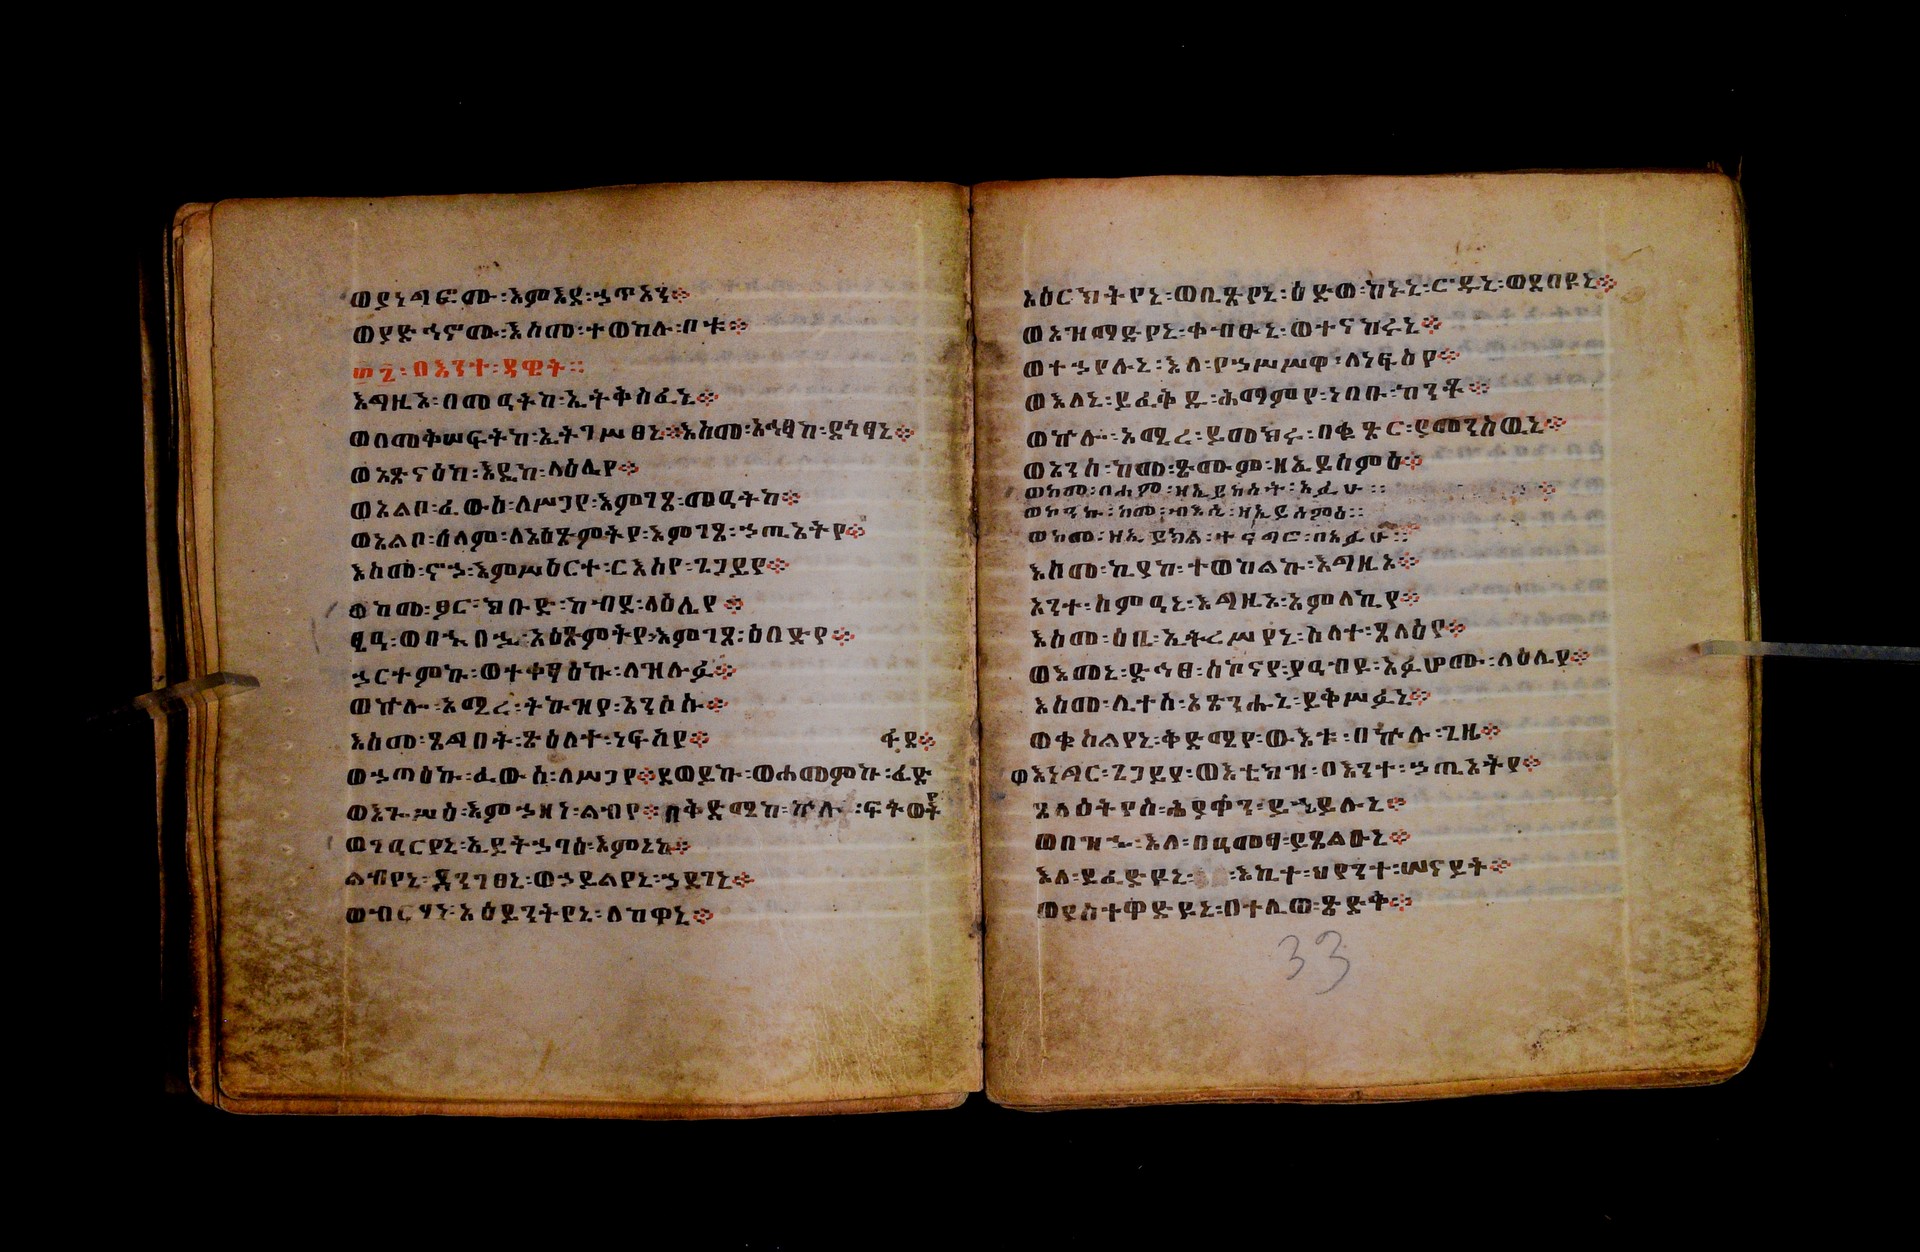 ወያነግፎሙ፡እምእደ፡ኃጥአን።
ወያድኅኖሙ፡እስመ፡ተወከሉ፡ቦቱ።
፴፯፡በእንተ፡ዳዊት፡፡
እግዚኦ፡በመዓትከ፡ኢትቅስፈኒ።
ወበመቅሠፍትከ፡ኢትገሥፀኒ።እስመ፡አኅፃከ፡ደጐፃኒ።
ወአጽናዕከ፡እዴከ፡ላዕሌየ።
ወአልቦ፡ፈውሰ፡ለሥጋየ፡እምገጸ፡መዓትከ።
ወአልቦ፡ሰላም፡ለአዕጽምትየ፡እምገጸ፡ኃጢአትየ።
እስመ፡ኖኃ፡እምሥዕርተ፡ርእስየ፡ጌጋይየ።
ወከመ፡ፆር፡ክቡድ፡ከብደ፡ላዕሌየ።
አዕጽምትየ፡እምገጸ፡ዕበድየ።
ኃርተምኩ፡ወተቀፃዕኩ፡ለዝሉፉ።
ወኵሎ፡አሚረ፡ትኩዝየ፡አንሶሱ።
እስመ፡ጸግበት፡ጽዕለተ፡ነፍስየ። ፋደ።
ወኃጣዕኩ፡ፈውሰ፡ለሥጋየ።ደወይኩ፡ወሐመምኩ፡ፈድ
ወእጐሥዕ፡እምኃዘነ፡ልብየ።በቅድሜከ፡ኵሉ፡ፍትወትየ
ወገዓርየኒ፡ኢይትኃባዕ፡እምኔከ።
ልብየኒ፡ደንገፀኒ፡ወኃይልየኒ፡ኃደገኒ።
ወብርሃነ፡አዕይንትየኒ፡ለከዋኒ።
አዕርክትየኒ፡ወቢጽየኒ፡ዕድወ፡ከኑኒ፡ሮዱኒ፡ወደበዩኒ።
ወአዝማድየኒ፡ቀብፁኒ፡ወተናከሩኒ።
ወተኃየሉኒ፡እለ፡የኃሥሥዋ፡ለነፍስየ።
ወእለኒ፡ይፈቅዱ፡ሕማምየ፡ነበቡ፡ከንቶ።
ወኵሎ፡አሚረ፡ይመክሩ፡በቁጽር፡ያመንስዉኒ።
ወአንሰ፡ከመ፡ጽሙም፡ዘኢይሰምዕ።
ወከመ፡በሐም፡ዘኢይከሥት፡አፉሁ፡፡
ወኮንኩ፡ከመ፡ብእሲ፡ዘኢይሰምዕ፡፡
ወከመ፡ዘኢይክል፡ተናግሮ፡በአፉሁ፡፡
እስመ፡ኪያከ፡ተወከልኩ፡እግዚኦ።
አንተ፡ስምዓኒ፡እግዚኦ፡አምላኪየ።
እስመ፡ዕቤ፡ኢትረሥየኒ፡ስላተ፡ጸላዕየ።
ወእመኒ፡ድኅፀ፡ሰኰናየ፡ያዓብዩ፡አፉሆሙ፡ላዕሌየ።
እስመ፡ሊተሰ፡አጽንሑኒ፡ይቅሥፉኒ።
ወቁስልየኒ፡ቅድሜየ፡ውእቱ፡በኵሉ፡ጊዜ።
እነግር፡ጌጋይየ፡ወእቴክዝ፡በእንተ፡ኃጢአትየ።
ጸላዕትየሰ፡ሕያዋን፡ይኄይሉኒ።
ወበዝኁ፡እለ፡በዓመፃ፡ይጸልዑኒ።
እለ፡ይፈድዩኒ፡እኪተ፡ህየንተ፡ሠናይት።
ወያስተዋድዩኒ፡በተሊወ፡ጽድቅ።
33